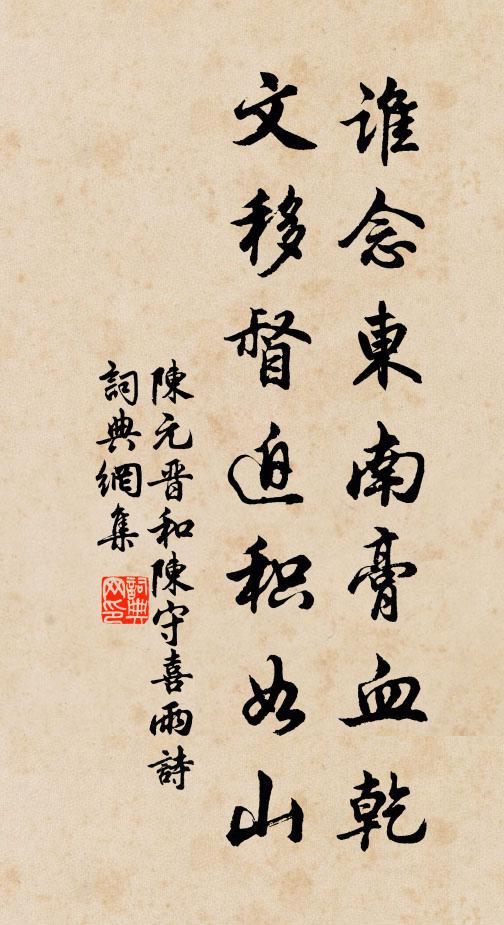 誰念東南膏血乾
文移督迫积如山
陳元晋和陳守喜雨詩
詞典網集
詞典
网印